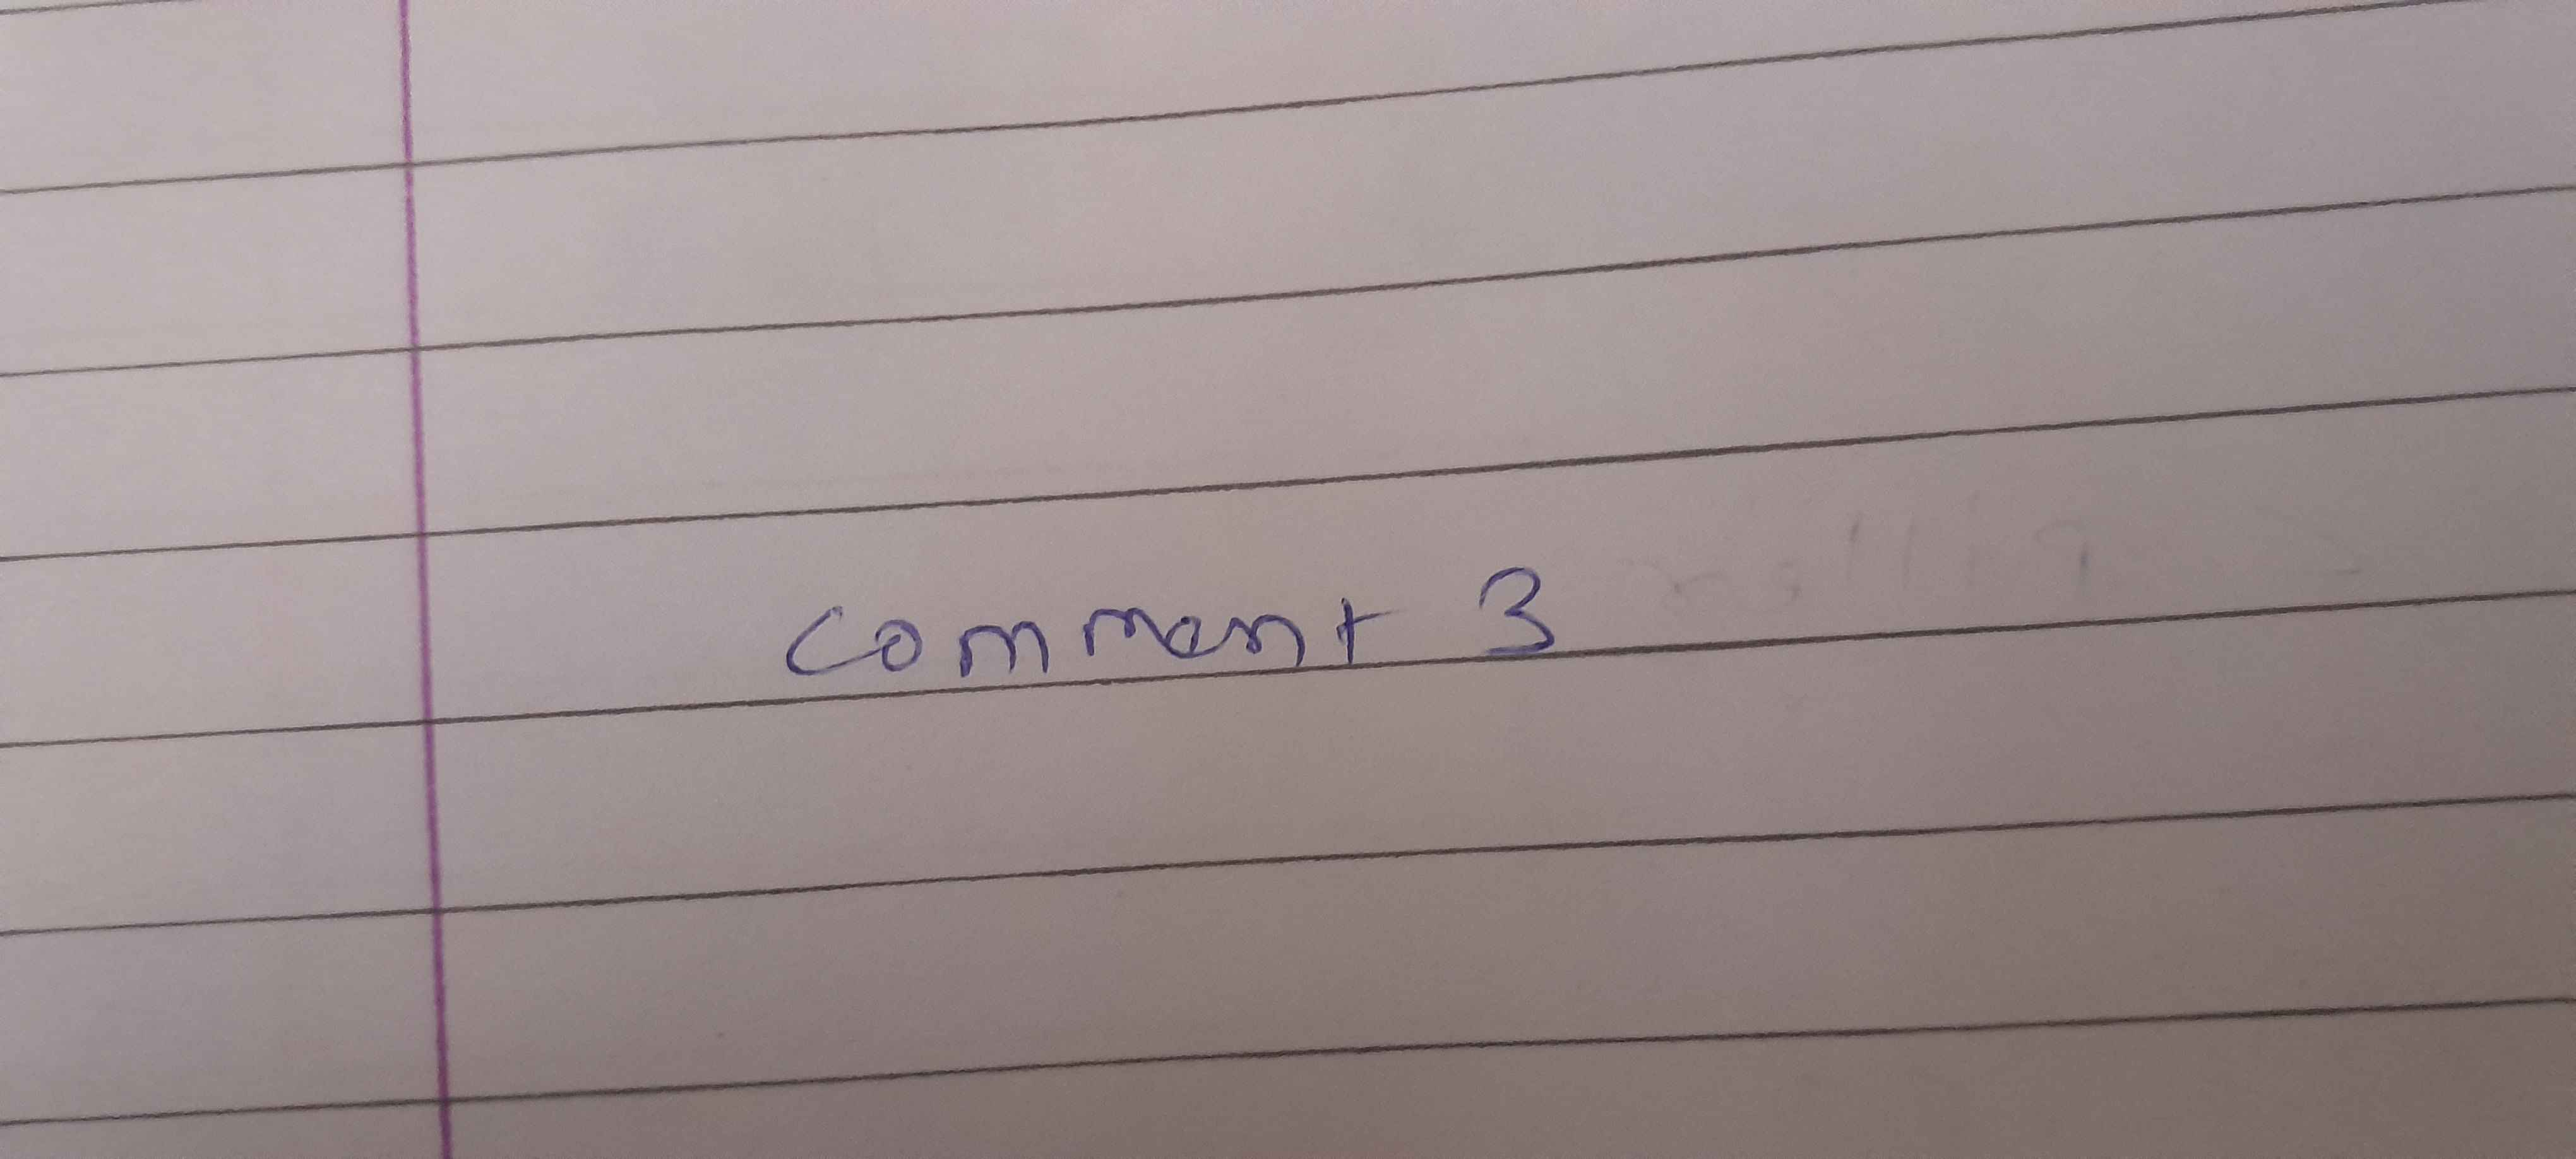 Comment 3